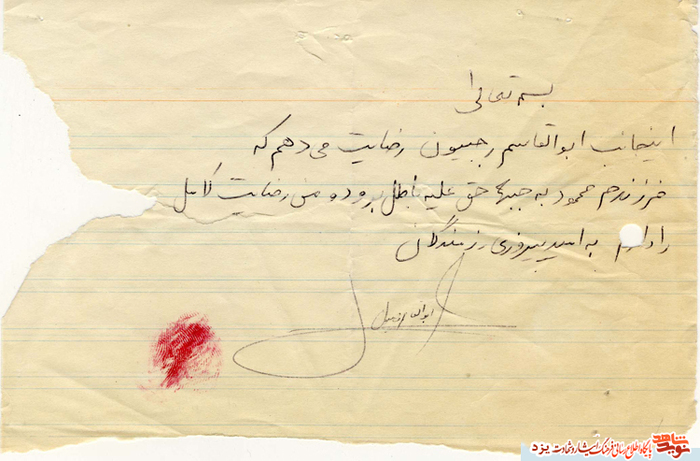 بسمه تعالی
اینجانب ابوالقاسم رجبیون رضایت می دهم که
فرزندم محمود به جبهه حق علیه باطل برود و من رضایت کامل
را دارم به امید پیروزی رزمندگان
نوید شاهد
پایگاه اطلاع رسانی فرهنگ ایثار و شهادت یزد